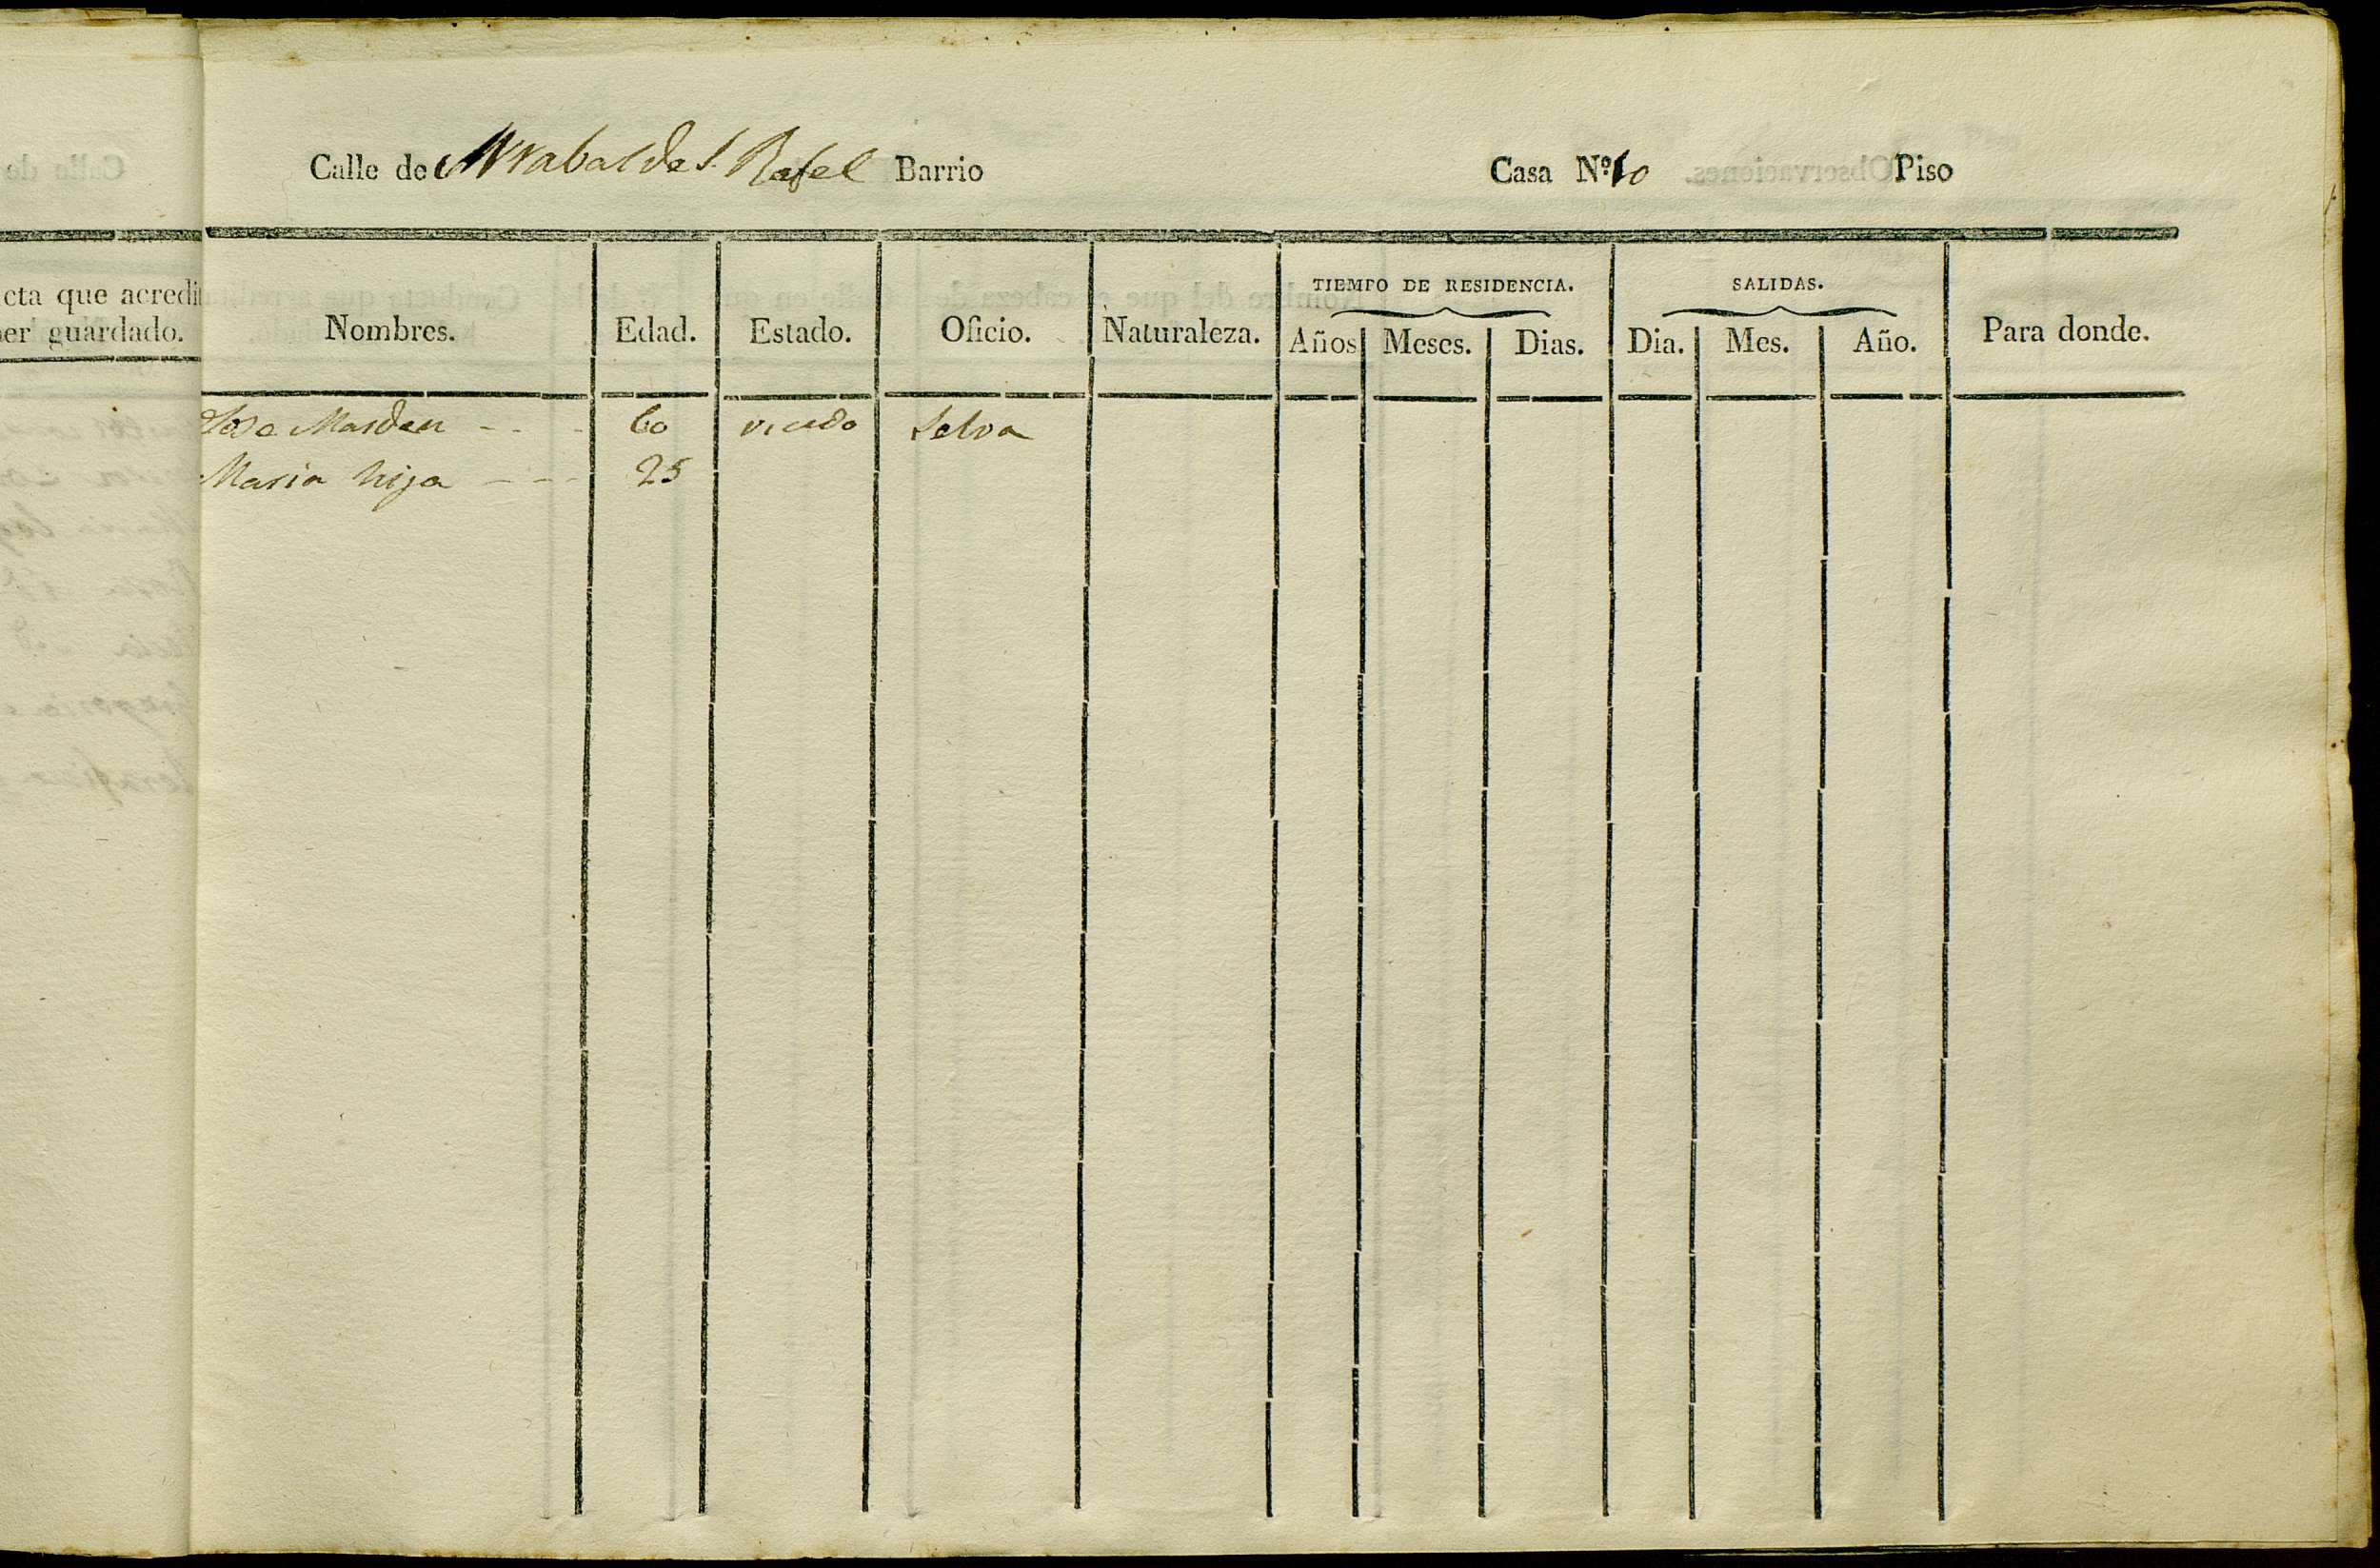 Calle de Arrabal de S. Rafel Barrio Casa N.º 10 Piso
cta que acredit
er guardado.
Nombres. Edad. Estado. Oficio. Naturaleza. TIEMPO DE RESIDENCIA. Años Meses. Dias. SALIDAS. Dia. Mes. Año. Para donde.
Jose Marden - - - 60 viudo Selva
Maria hija - - - 25